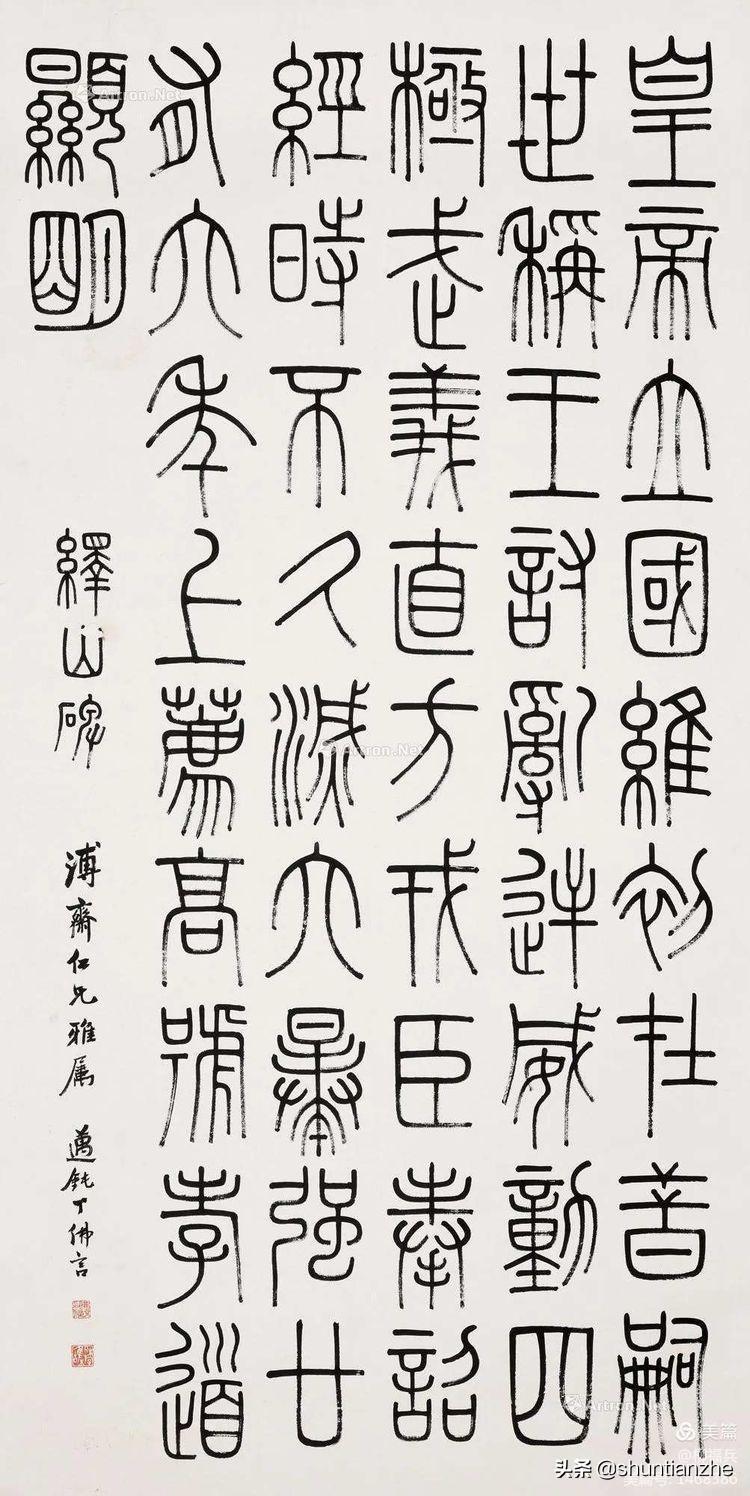 皇帝立國維初在昔嗣
世稱王討亂逆威動四
極武義直方戎臣奉詔
經時不久滅六暴强廿
有六年上薦高號孝道
顯明
繹山碑
溥齋仁兄雅屬 邁鈍丁佛言
Artron.Net
Artron.Net
Artron.Net
美篇
头条 @shuntianzhe